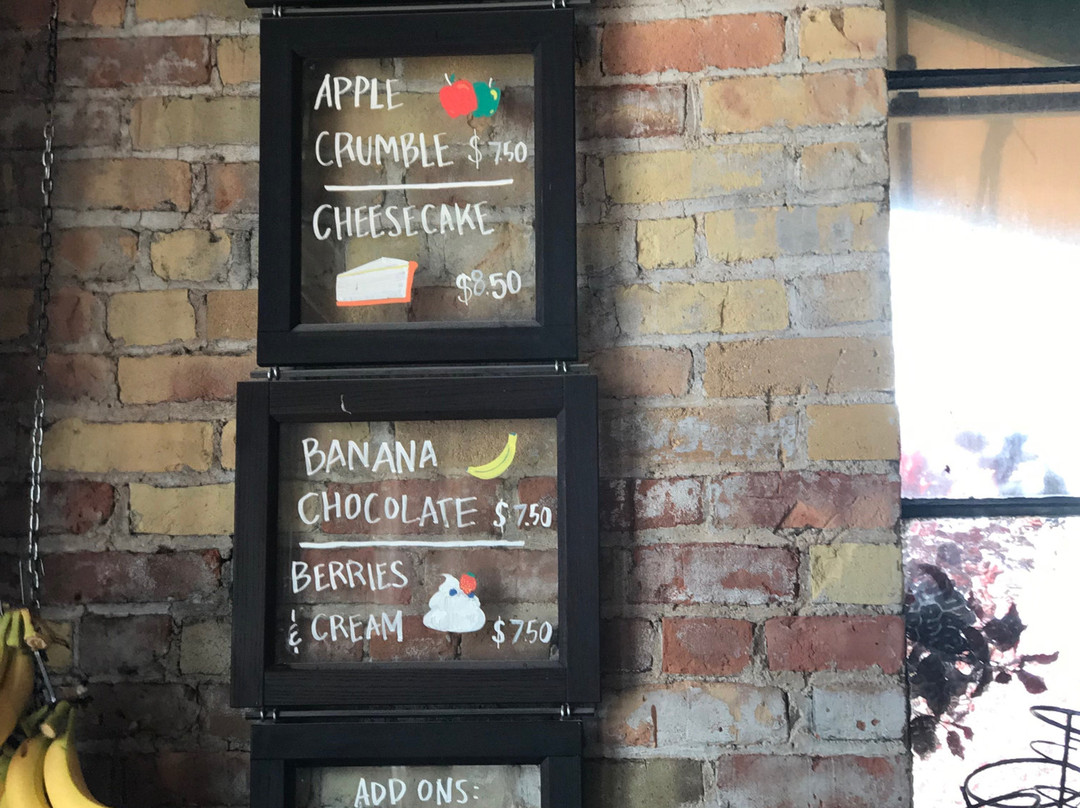 APPLE
CRUMBLE $7.50
CHEESECAKE
$8.50
BANANA
CHOCOLATE $7.50
BERRIES
& CREAM $7.50
ADD ONS: